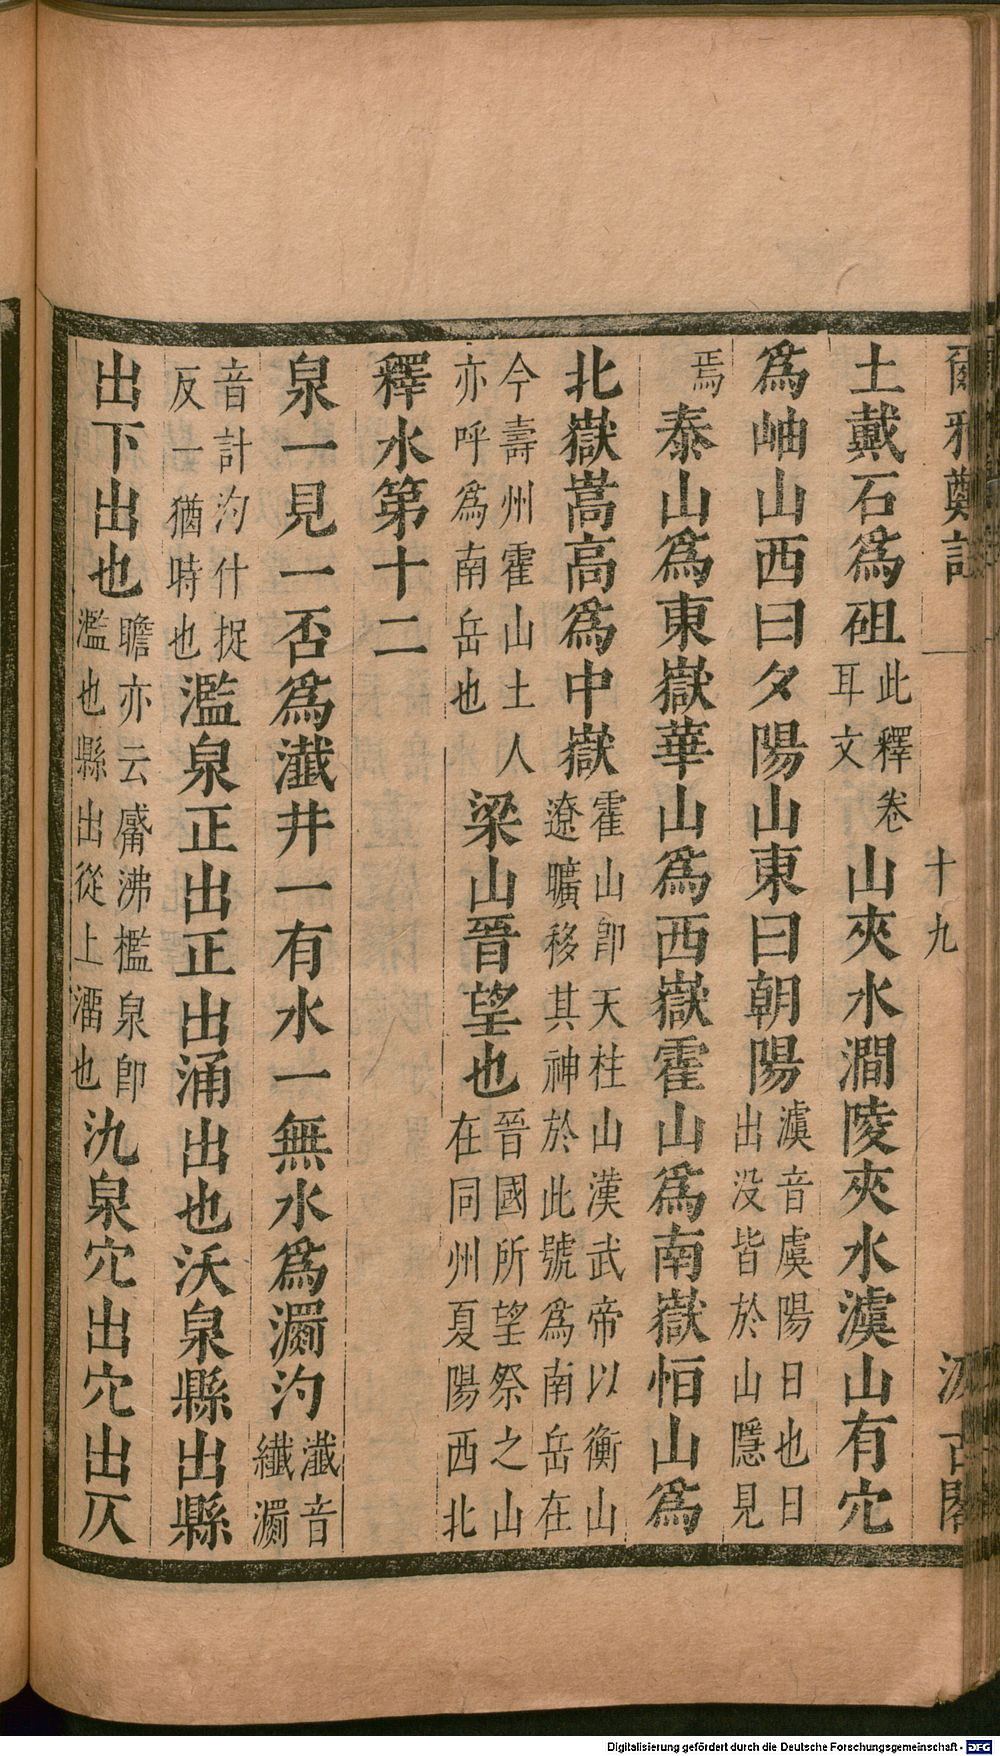 爾雅鄭註 十九 汲古閣
土戴石爲砠此釋卷耳文山夾水澗陵夾水澞山有穴
爲岫山西曰夕陽山東曰朝陽澞音虞陽日也日出没皆於山隱見
焉泰山爲東嶽華山爲西嶽霍山爲南嶽恒山爲
北嶽嵩高爲中嶽霍山卽天柱山漢武帝以衡山遼曠移其神於此號爲南岳在
今壽州霍山土人亦呼爲南岳也梁山晉望也晉國所望祭之山在同州夏陽西北
釋水第十二
泉一見一否爲瀸井一有水一無水爲瀱汋瀸音纎瀱
音計汋什捉反一猶時也濫泉正出正出涌出也沃泉縣出縣
出下出也瞻亦云觱沸檻泉卽濫也縣出從上溜也氿泉穴出穴出仄
Digitalisierung gefördert durch die Deutsche Forschungsgemeinschaft - DFG